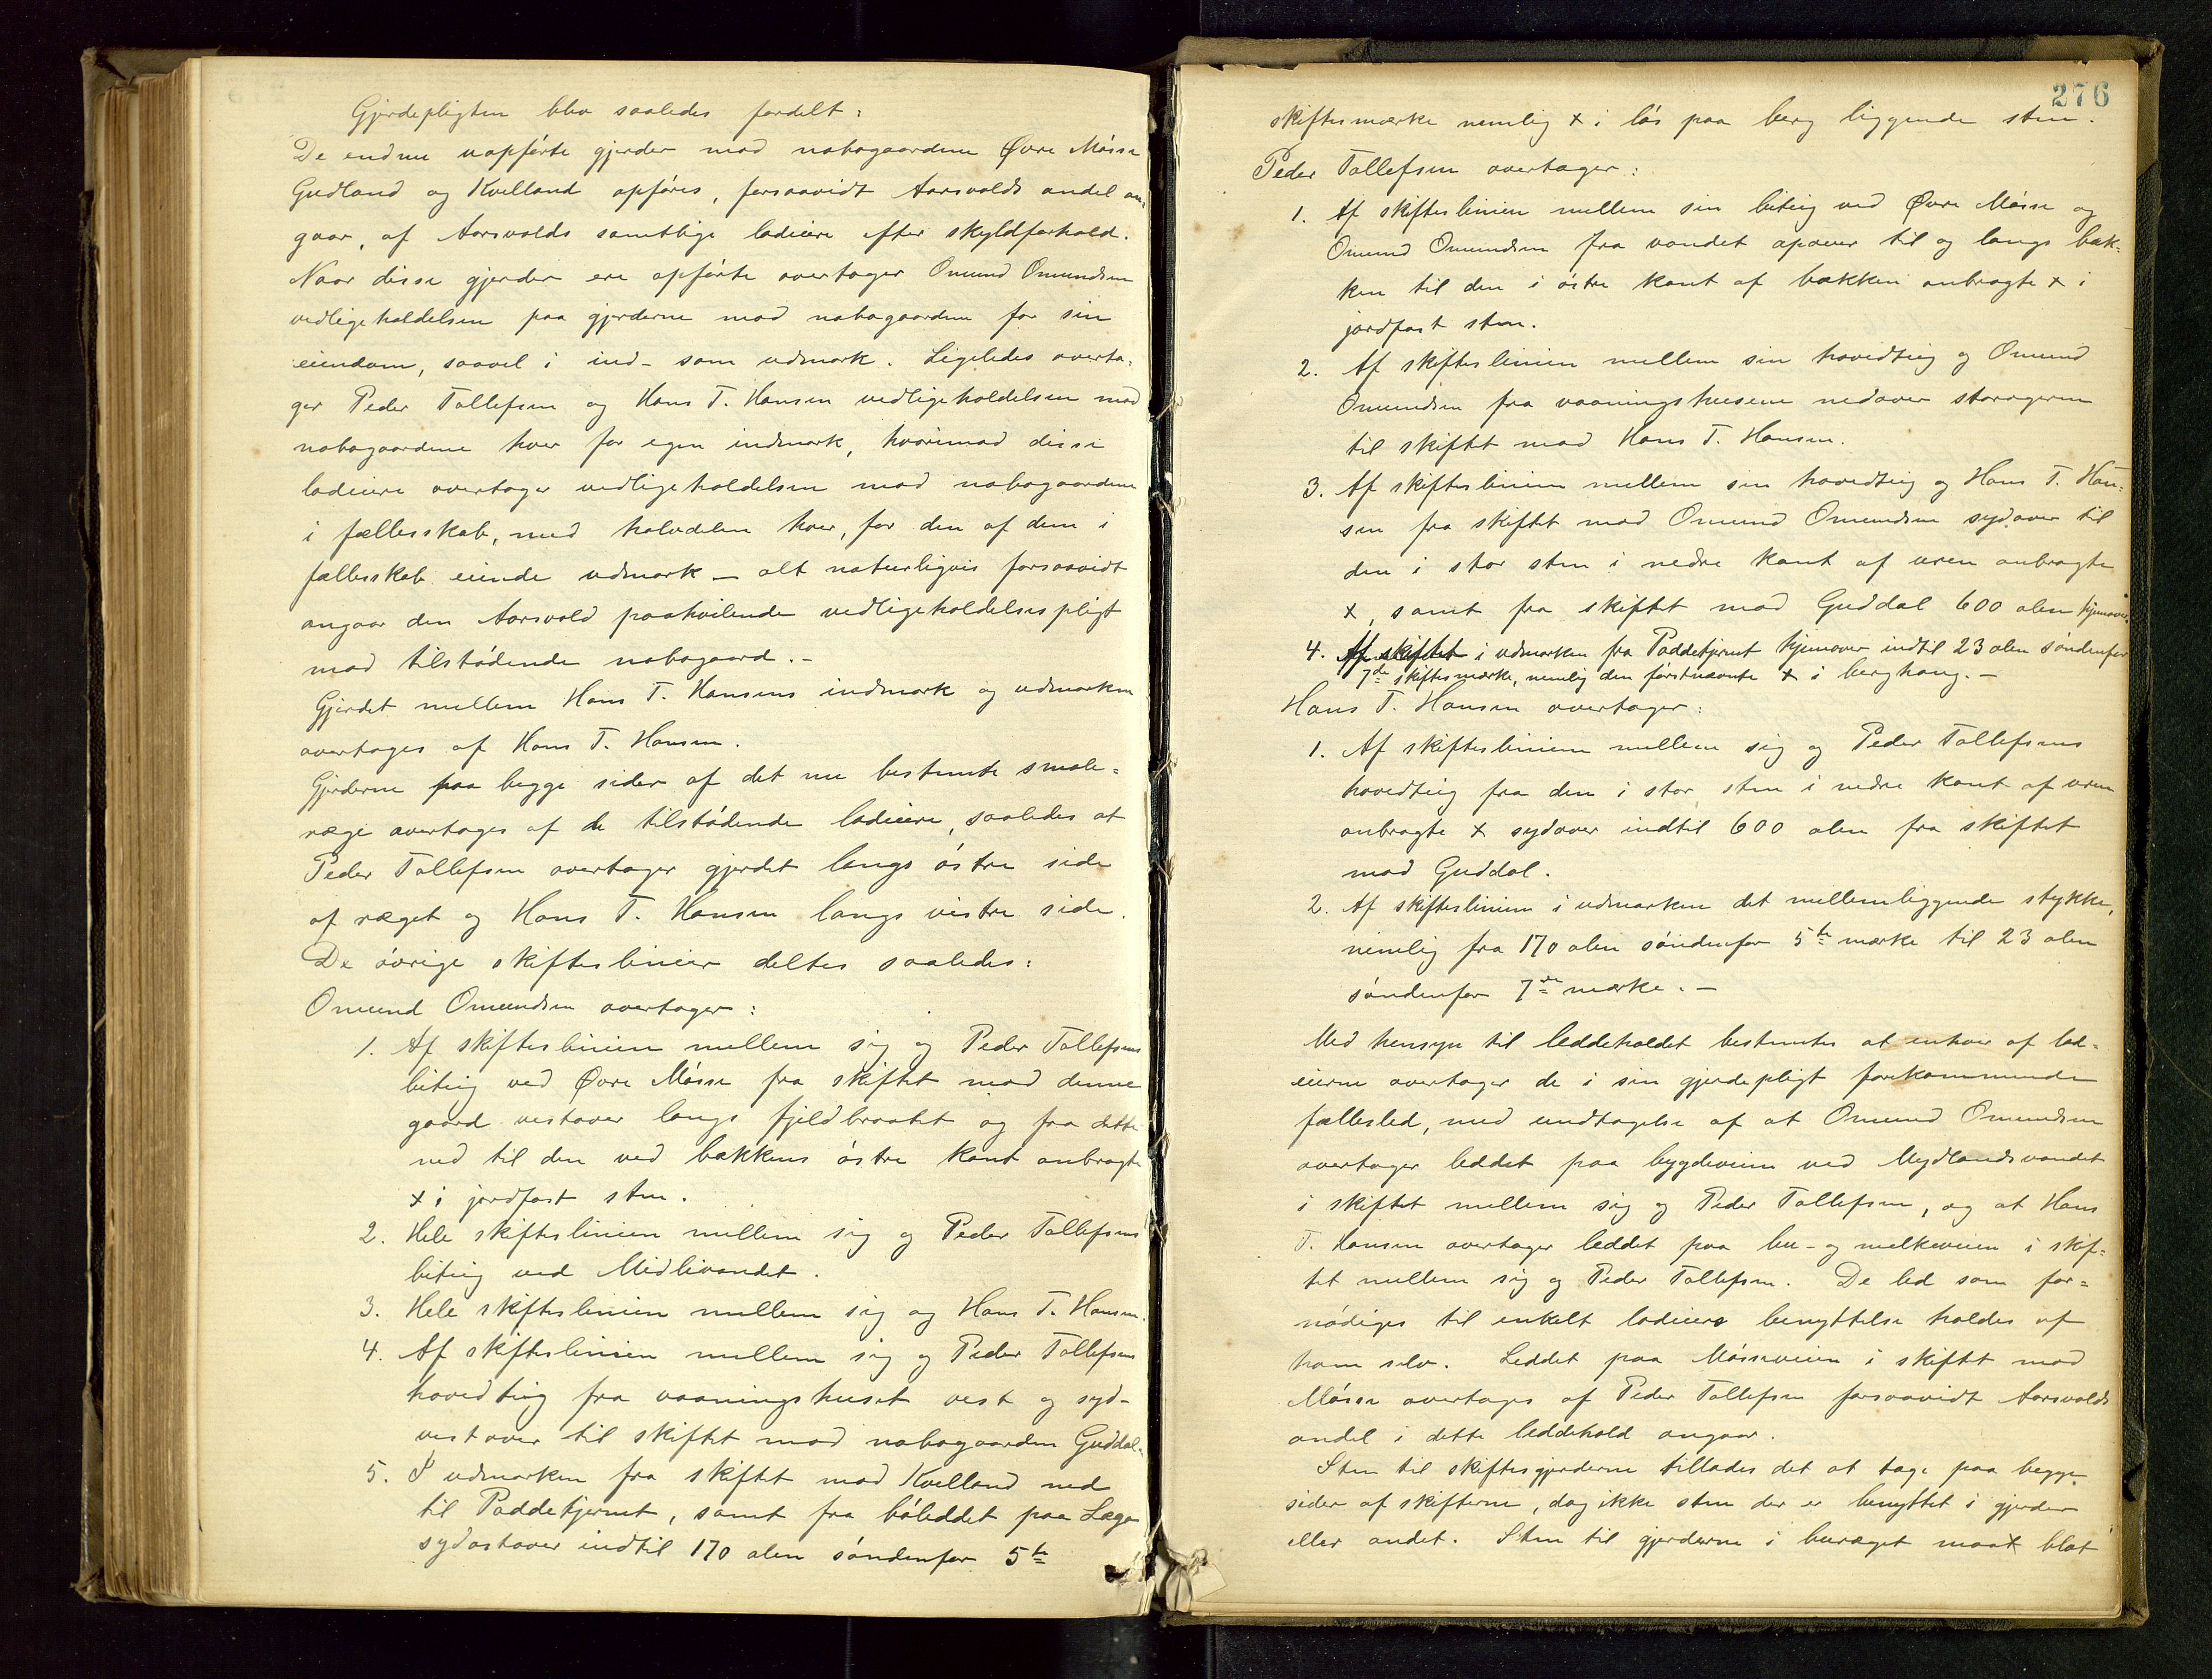 Gjerdepligten blev saaledes fordelt:
De endnu uopførte gjerder mod nabogaardene Øvre Møsse
Gudland og Kvelland opføres, forsaavidt Aarsvolds andel an-
gaar, af Aarsvolds samtlige lodeiere efter skyldforhold.
Naar disse gjerder ere opførte overtager Omund Omundsen
vedligeholdelsen paa gjerderne mod nabogaardene for sin
eiendom, saavel i ind- som udmark. Ligeledes overta-
ger Peder Tollefsen og Hans T. Hansen vedligeholdelsen mod
nabogaardene hver for egen indmark, hvorimod disse
lodeiere overtager vedligeholdelsen mod nabogaardene
i fællesskab, med halvdelen hver, for den af dem i
fællesskab eiende udmark – alt naturligvis forsaavidt
angaar den Aarsvold paahvilende vedligeholdelsespligt
mod tilstødende nabogaard. –
Gjerdet mellem Hans T. Hansens indmark og udmarken
overtages af Hans T. Hansen.
Gjerderne paa begge sider af det nu bestemte smale-
ræge overtages af de tilstødende lodeiere, saaledes at
Peder Tollefsen overtager gjerdet langs østre side
af ræget og Hans T. Hansen langs vestre side.
De øvrige skifteslinier deltes saaledes:
Omund Omundsen overtager:
1. Af skifteslinien mellem sig og Peder Tollefsens
beteig ved Øvre Møsse fra skiftet mod denne
gaard vestover langs fjeldbraatet og fra dette
ned til den ved bækkens østre kant anbragte
x i jordfast sten.
2. Hele skifteslinien mellem sig og Peder Tollefsens
beteig ved Midlivandet.
3. Hele skifteslinien mellem sig og Hans T. Hansen.
4. Af skifteslinien mellem sig og Peder Tollefsens
hovedteig fra vaaningshuset vest og syd-
vestover til skiftet mod nabogaarden Guddal.
5. I udmarken fra skiftet mod Kvelland ned
til Paddetjernet, samt fra bøleddet paa Læga
sydostover indtil 170 alen søndenfor 5te
276
skiftesmærke nemlig x i løs paa berg liggende sten.
Peder Tollefsen overtager:
1. Af skifteslinien mellem sin beteig ved Øvre Møsse og
Omund Omundsen fra vandet opover til og langs bæk-
ken til den i østre kant af bækken anbragte x i
jordfast sten.
2. Af skifteslinien mellem sin hovedteig og Omund
Omundsen fra vaaningshusene nedover storageren
til skiftet mod Hans T. Hansen.
3. Af skifteslinien mellem sin hovedteig og Hans T. Han-
sen fra skiftet mod Omund Omundsen sydover til
den i stor sten i nedre kant af uren anbragte
x, samt fra skiftet mod Guddal 600 alen hjemover.
4. Af skiftet i udmarken fra Paddetjernet hjemover indtil 23 alen søndenfor
7de skiftesmærke, nemlig den førstnævnte x i berghang. –
Hans T. Hansen overtager:
1. Af skifteslinien mellem sig og Peder Tollefsens
hovedteig fra den i stor sten i nedre kant af uren
anbragte x sydover indtil 600 alen fra skiftet
mod Guddal.
2. Af skifteslinien i udmarken det mellemliggende stykke,
nemlig fra 170 alen søndenfor 5te mærke til 23 alen
søndenfor 7de mærke. –
Med hensyn til leddeholdet bestemtes at enhver af lod-
eierne overtager de i sin gjerdepligt forekommende
fællesled, med undtagelse af at Omund Omundsen
overtager leddet paa bygdeveien ved Mydlandsvandet
i skiftet mellem sig og Peder Tollefsen, og at Hans
T. Hansen overtager leddet paa bu- og melkeveien i skif-
tet mellem sig og Peder Tollefsen. De led som for-
nødiges til enkelt lodeiers benyttelse holdes af
ham selv. Leddet paa Møsseveien i skiftet mod
Møsse overtages af Peder Tollefsen forsaavidt Aarsvolds
andel i dette leddehold angaar.
Sten til skiftesgjerderne tillades det at tage paa begge
sider af skifterne, dog ikke sten der er benyttet i gjerder
eller andet. Sten til gjerderne i buræget maa blot